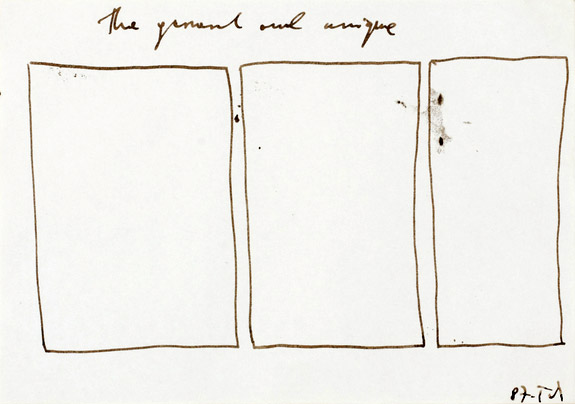 The general and unique
87-